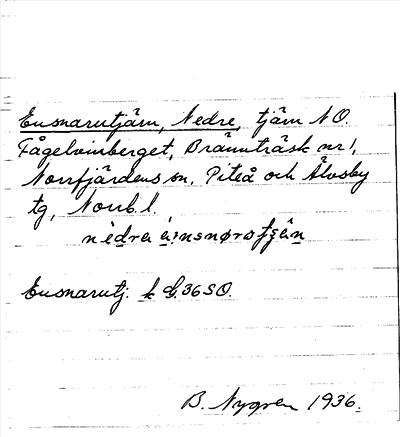 Ensnarutjärn, Nedre, tjärn NO.
Fågelvinberget, Brännträsk nr 1,
Norrfjärdens sn. Piteå och Älvsby
tg, Norrb. l.
Ensnarutj. k G. 36 SO.
B. Nygren 1936.